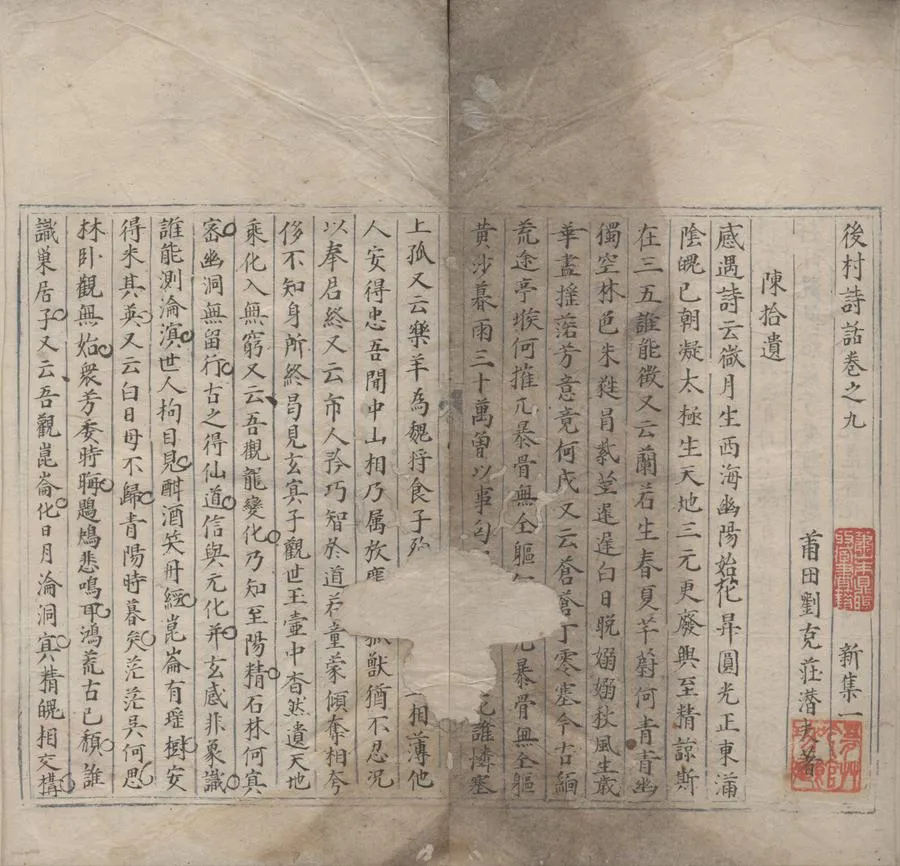 後村詩話卷之九 新集一
莆田劉克莊潛夫著
陳拾遺
感遇詩云微月生西海幽陽始花昇圓光正東滿
陰魄已朝凝太極生天地三元更廢興至精諒斯
在三五誰能徵又云蘭若生春夏芊蔚何青青幽
獨空林色朱蕤冒紫莖遲遲白日晚嫋嫋秋風生歲
華盡搖落芳意竟何成又云蒼蒼丁零塞今古緬
荒途亭堠何摧兀暴骨無全軀兀暴骨無全軀
黃沙暮雨三十萬曾以事匈誰憐塞
上孤又云樂羊為魏將食子殉相薄他
人安得忠吾聞中山相乃属放麑孤獸猶不忍况
以奉君終又云市人矜巧智於道若童蒙傾奪相夸
侈不知身所終曷見玄冥子觀世玉壺中杳然遺天地
乘化入無窮又云吾觀龍變化乃知至陽精石林何冥
密幽洞無留行古之得仙道信與元化并玄感非象識
誰能測淪溟世人拘目見酣酒笑丹經崑崙有瑶樹安
得采其英又云白日每不歸青陽時暮矣茫茫吾何思
林卧觀無始衆芳委時晦鶗鴂悲鳴耳鴻荒古已頹誰
識巢居子又云吾觀崑崙化日月淪洞冥精魄相交構